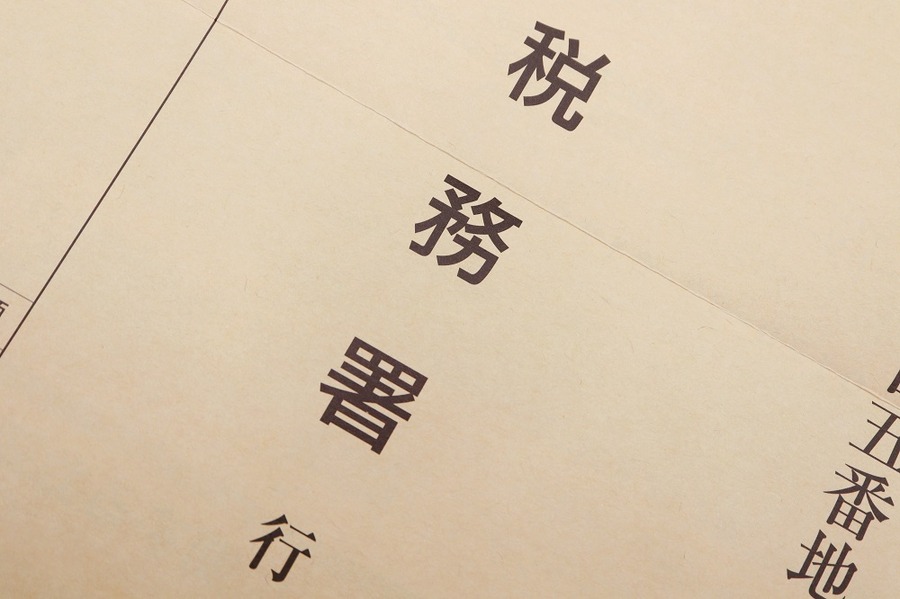 五番地
税務署
行